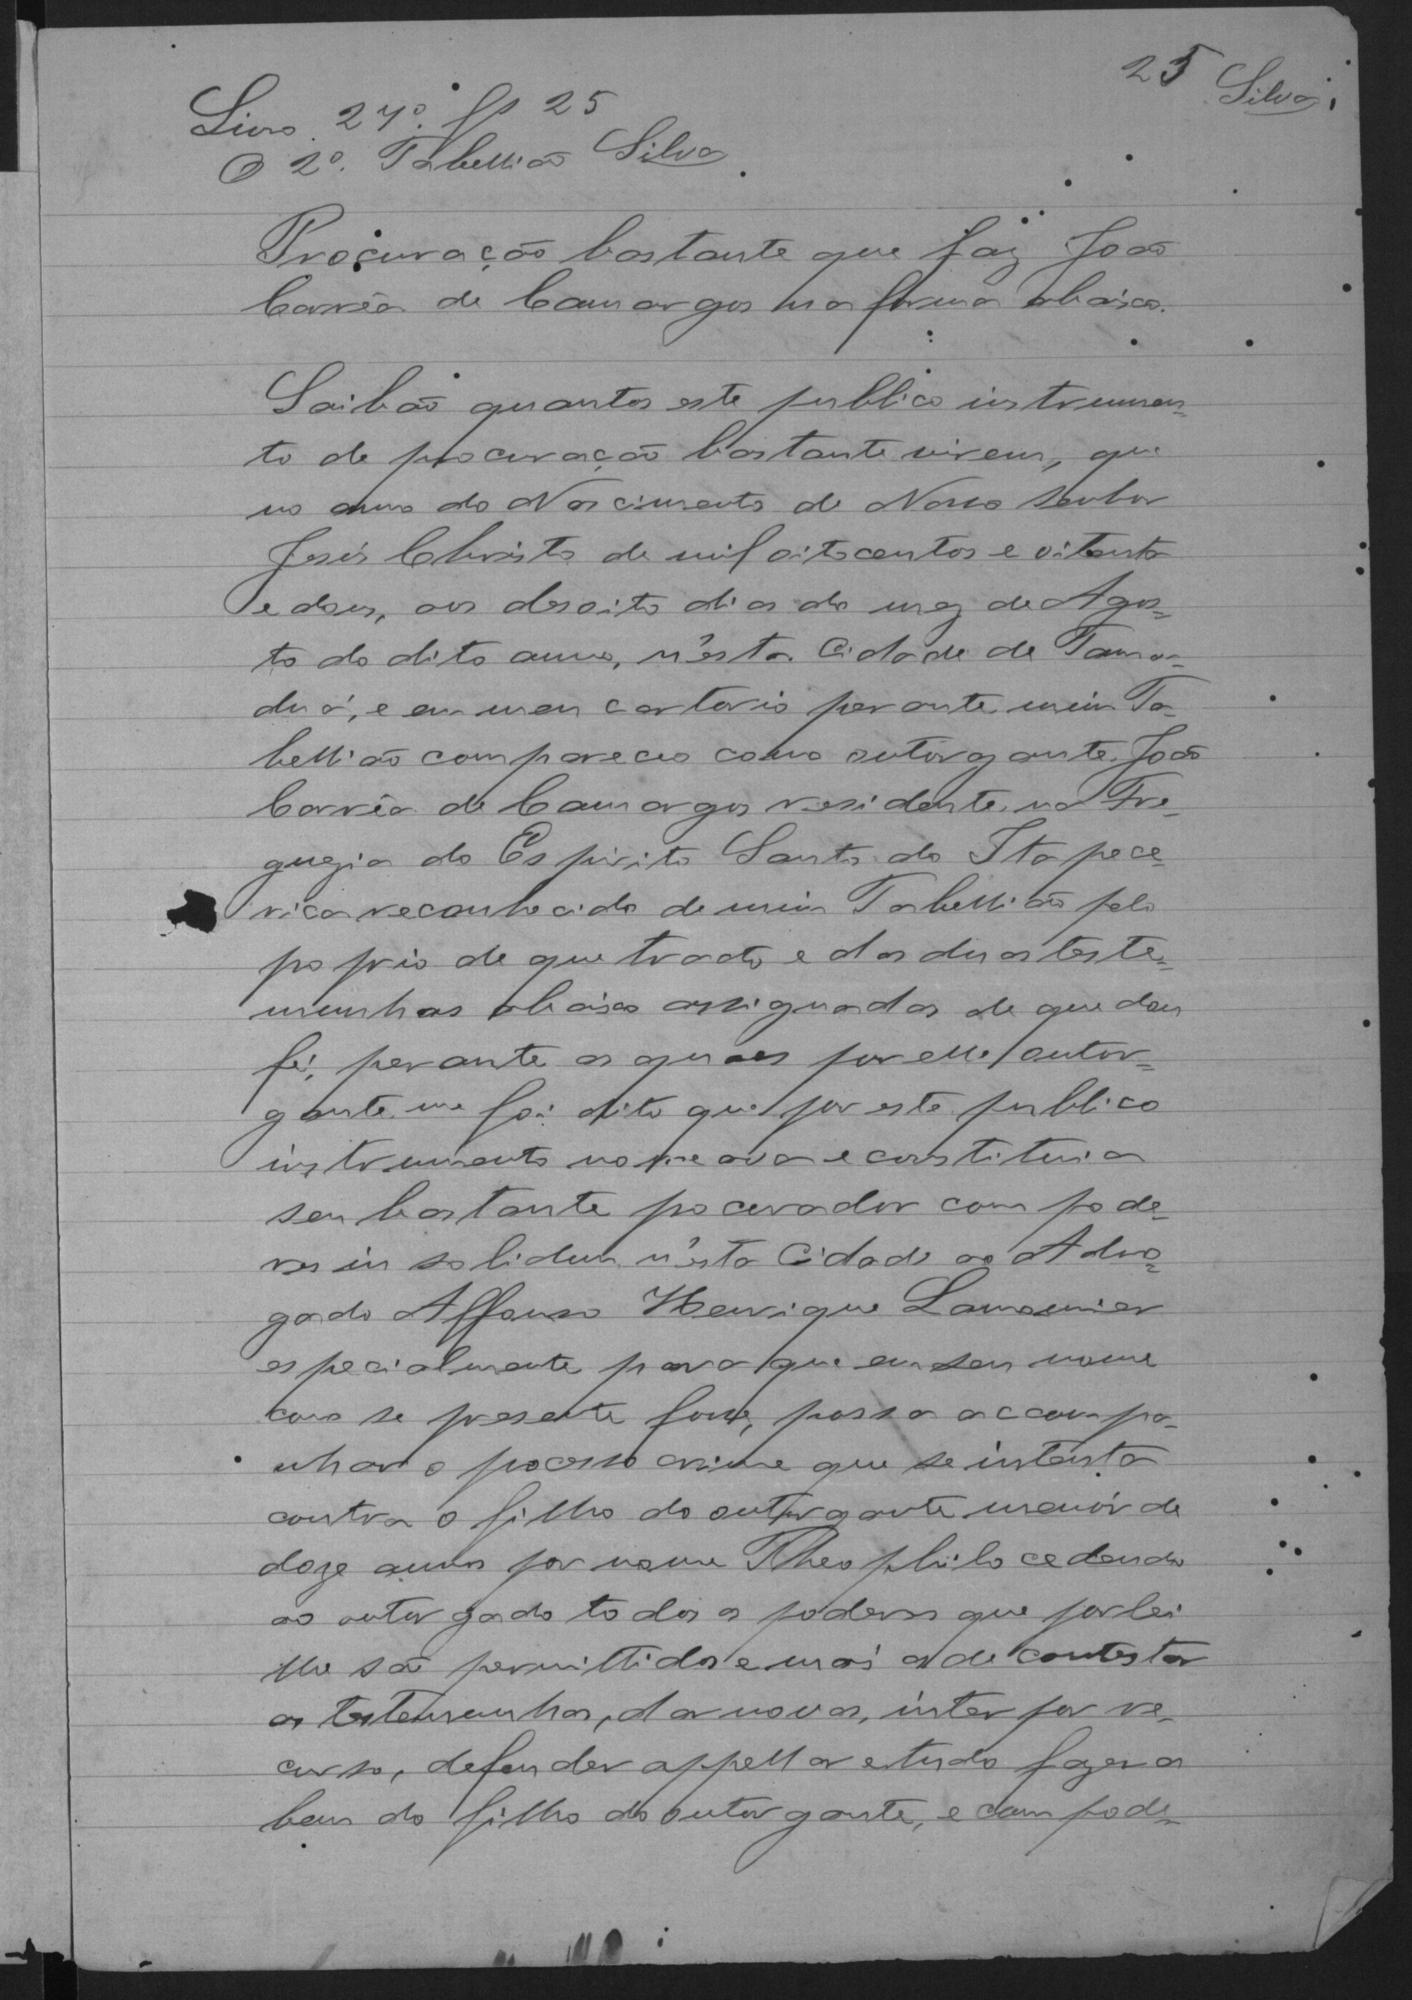 25 Silva
Livro 27º. fs 25
O 2º. Tabellião Silva
Procuração bastante que faz João
Corrêa de Camargos na forma abaixo.
Saibão quantos este publico instrumen=
to de procuração bastante virem, que
no anno do Nascimento de Nosso Senhor
Jesús Christo de mil oitocentos e oitenta
e dous, aos desoito dias do mez de Agos=
to do dito anno, n'esta Cidade de Taman=
duá, e em meu cartorio perante mim Ta=
bellião compareceo como outorgante João
Corrêa de Camargos residente na Fre=
guezia do Espirito Santo do Itapece=
rica reconhecido de mim Tabellião pelo
poprio de que trato e das duas teste=
munhas abaixo assignadas de que dou
fé, perante as quaes por elle outor=
gante me foi dito que por este publico
instrumento nomeava e constituia
seu bastante pocurador com pode=
res in solidum n'esta Cidade ao Advo=
gado Affonso Henrique Lamounier
especialmente para que em seu nome
como se presente fosse, possa accompa=
nhar o pocesso crime que se intenta
contra o filho do outorgante menór de
doze annos por nome Theophilo cedendo
ao outorgado todos os poderes que por lei
lhe são permittidos e mais os de contestar
as testemunhas, dar novas, inter por re=
curso, defender appellar e tudo fazer a
bem do filho do outorgante, e com pode=